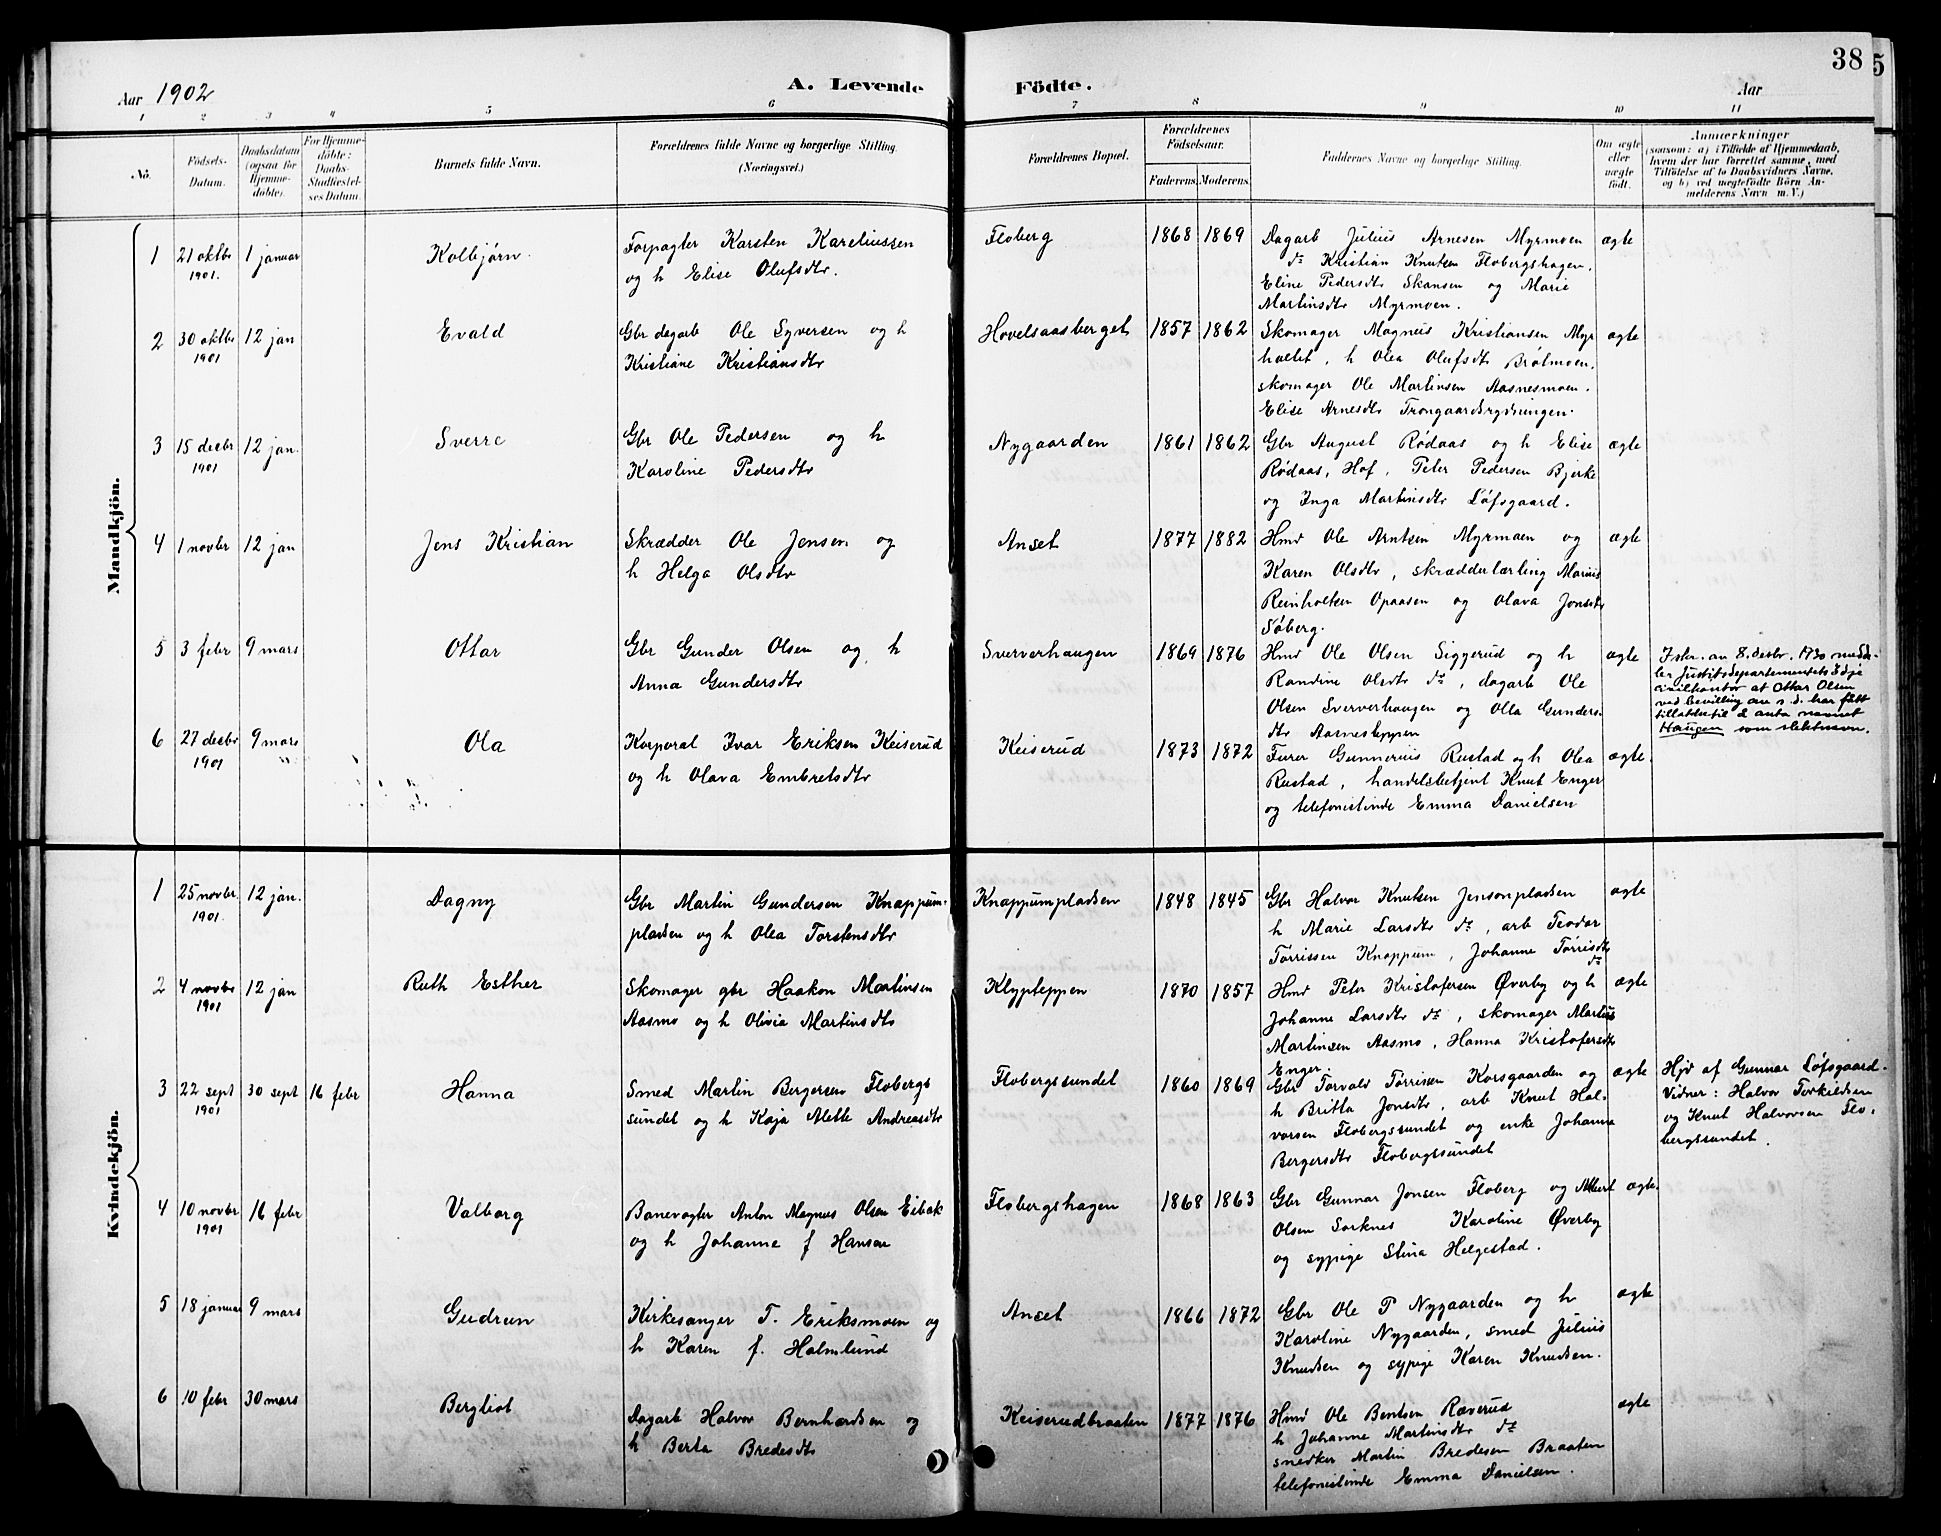 38
5
Aar 1902
A. Levende
Födte.
Aar
1 2 3 4 5 6 7 8 9 10 11
No.
Födsels-
Datum.
Daabsdatum
(ogsaa for
Hjemme-
döbte).
For Hjemme-
döbte:
Daabs-
Stadfæstel-
ses Datum.
Barnets fulde Navn.
Forældrenes fulde Navne og borgerlige Stilling
(Næringsvei.)
Forældrenes Bopæl.
Forældrenes
Födselsaar.
Faderens. Moderens.
Faddernes Navne og borgerlige Stilling.
Om ægte
eller
uægte
födt.
Anmærkninger
(saasom: a) i Tilfælde af Hjemmedaab,
hvem der har forrettet samme, med
Tilföielse af to Daabsvidners Navne,
og b) ved uægtefödte Börn An-
melderens Navn m. V.)
Mandkjön.
1 21 oktbr 1901. 1 januar Kolbjørn.
Forpagter Karsten Kareliussen
og h Elise Olufsdtr.
Floberg 1868 1869
Dagarb Julius Arnesen Myrmoen
do Kristian Knutsen Flobergshagen.
Eline Pedersdtr Skansen og Marie
Martinsdtr Myrmoen.
ægte
2 30 oktbr 1901 12 jan Evald
Gbr dagarb Ole Syversen og h
Kristiane Kristiansdtr
Hovelsaasberget 1857 1862
Skomager Magnus Kristiansen Myr
holtet, h Olea Olufsdtr Brøtmoen.
skomager Ole Martinsen Aasnesmoen.
Elise Arnesdtr Trongaardsrydningen.
ægte
3 15 desbr 1901 12 jan. Sverre
Gbr Ole Pedersen og h
Karoline Pedersdtr
Nygaarden 1861 1862
Gbr August Rødaas og h Elise
Rødaas, Hof, Peter Pedersen Bjerke
og Inga Martinsdtr Løfsgaard.
ægte
4 1 novbr 12 jan Jens Kristian
Skrædder Ole Jensen og
h Helga Olsdtr
Anset 1877 1882
Hmd Ole Arntsen Myrmoen og
Karen Olsdtr, skrædderlærling Marius
Reinholtsen Opaasen og Olava Jonsdtr
Søberg.
ægte
5 3 febr 9 mars Ottar
Gbr Gunder Olsen og h
Anna Gundersdtr
Sververhaugen 1869 1876
Hmd Ole Olsen Siggerud og h
Randine Olsdtr do, dagarb Ole
Olsen Sververhaugen og Olla Gunders-
dtr Aasnesteppen
ægte
I skr. av 8. desbr. 1930 medde-
ler Justitsdepartementets
civilkontor at Ottar Olsen
ved bevilling av s. d. har fått
tillatelse til å anta navnet
Haugen som slektsnavn.
6 27 desbr 1901 9 mars Ola
Korporal Ivar Eriksen Keiserud
og h Olava Embretsdtr
Keiserud 1873 1872
Furer Gunnerius Rustad og h Olea
Rustad, handelsbetjent Knut Enger
og telefonistinde Emma Danielsen
ægte.
Kvindekjön.
1 25 novbr 1901. 12 jan. Dagny
Gbr Martin Gundersen Knappum-
pladsen og h Olea Torstensdtr
Knappumpladsen 1848 1845
Gbr Halvor Knutsen Jensonpladsen
h Marie Larsdtr do, arb Teodor
Tørrissen Knappum, Johanne Tørrisdtr
do
ægte
2 4 novbr 1901 12 jan Ruth Esther
Skomager gbr Haakon Martinsen
Aasmo og h Olivia Martinsdtr
Klypteppen 1870 1857
Hmd Peter Kristofersen Øverby og h
Johanne Larsdtr do, skomager Martius
Martinsen Aasmo, Hanna Kristofersdtr
Enger.
ægte
3 22 sept 1901 30 sept 16 febr Hanna
Smed Martin Bergersen Flobergs
sundet og h Kaja Alette Andreasdtr
Flobergssundet 1860 1869
Gbr Torvald Tørrisen Korsgaarden og
h Britta Jonsdtr, arb Knut Hal-
vorsen Flobergssundet og enke Johanna
Bergersdtr Flobergssundet
ægte
Hjd af Gunnar Løfsgaard.
Vidner: Halvor Torkildsen
og Knut Halvorsen Flo-
bergssundet.
4 10 novbr 1901 16 febr Valborg
Banevogter Anton Magnus Olsen Eibak
og h Johanne f Hansen
Flobergshagen 1868 1863
Gbr Gunnar Jonsen Floberg og Albert
Olsen Sorknes Karoline Øverby
og sypige Stina Helgestad.
ægte.
5 18 januar 9 mars Gudrun
Kirkesanger T. Eriksmoen og
h Karen f. Halmlund
Anset 1866 1872
Gbr Ole P Nygaarden og h
Karoline Nygaarden, smed Julius
Knudsen og sypige Karen Knudsen.
ægte
6 10 febr 30 mars Bergliot
Dagarb Halvor Bernhardsen og
h Berta Bredesdtr
Keiserudbraaten 1877 1876
Hmd Ole Bentsen Røverud
h Johanne Martinsdtr do
snedker Martin Bredesen Braaten
telefonistinde Emma Danielsen.
ægte